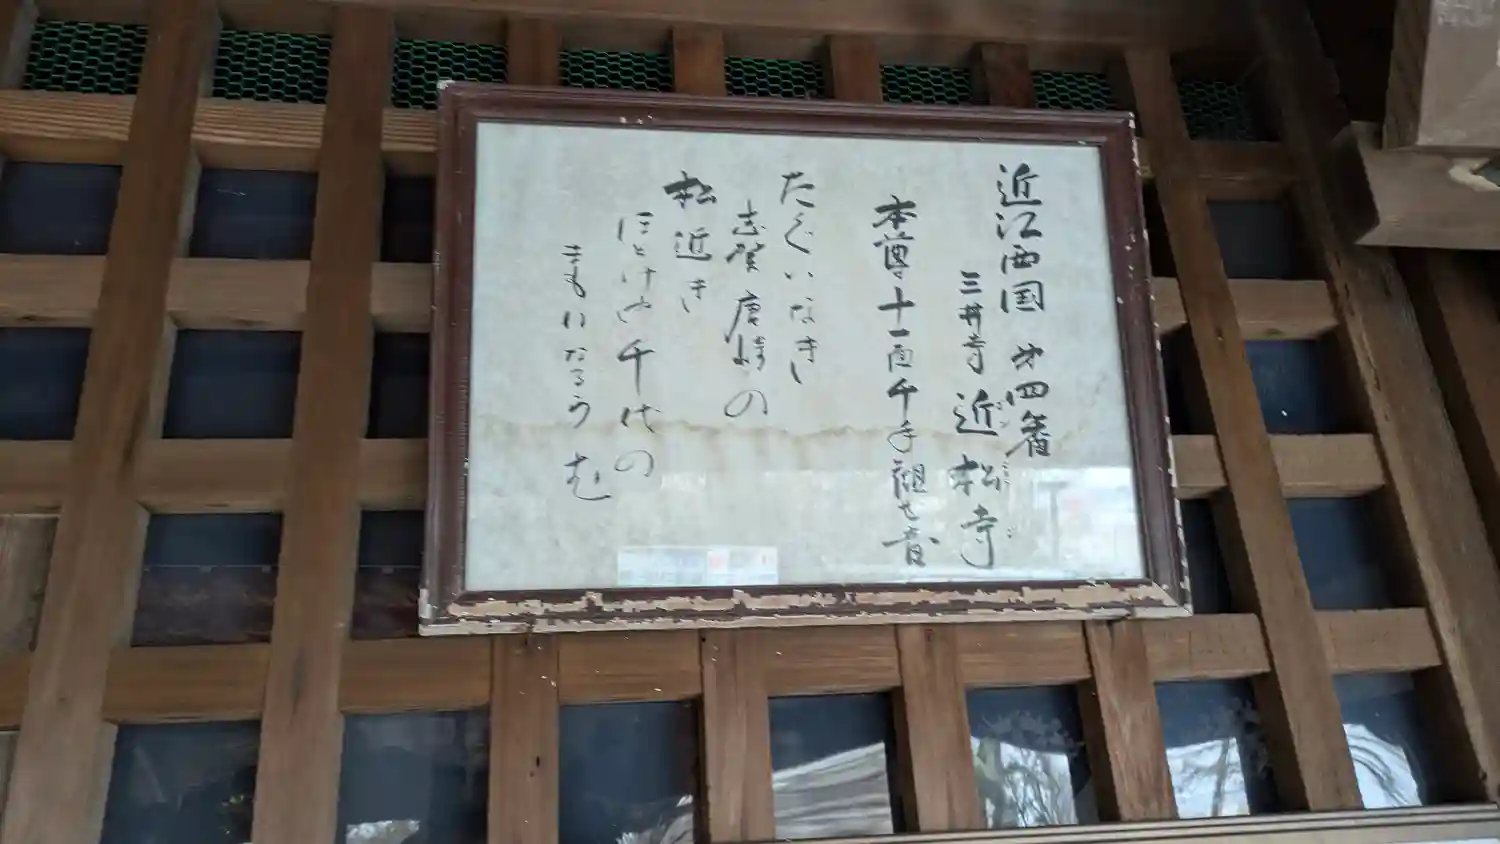 近江西国 第四番
三井寺 近松寺
本尊 十一面千手観世音
たぐいなき
志賀唐崎の
松近き
ほとけや千代の
まもりなるらむ